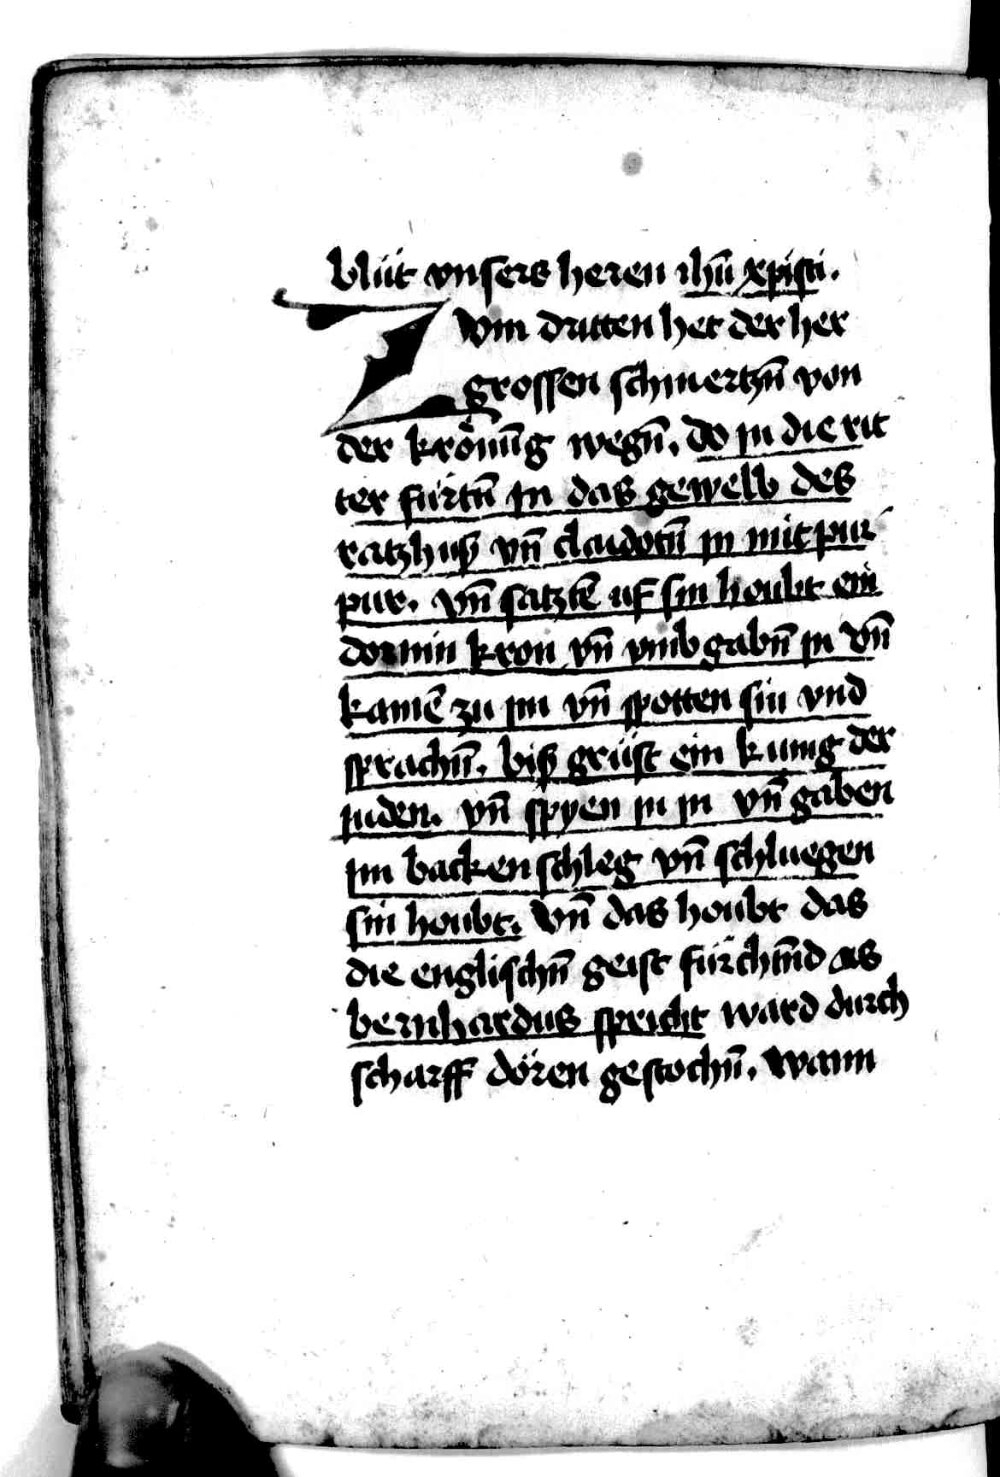 blüt vnsers heren ihū xpisti.
Zum dritten het der her
grossen schmertzn̄ von
der krönūg wegn̄. do jn die rit
ter fürtn̄ jn das gewelb des
ratzhuß vn̄ claidotn̄ jn mit pur
pur. vn̄ satztē uf sin houbt ein
dornin kron vn̄ vmbgabn̄ jn vn̄
kamē zu jm vn̄ spotten sin vnd
sprachn̄. biß grüst ein kunig der
juden. vn̄ spyen jn jn vn̄ gaben
jm backen schleg vn̄ schluegen
sin houbt. Vn̄ das houbt das
die englischn̄ geist fürchtn̄d als
bernhardus spricht ward durch
scharff dören gestochn̄. wann